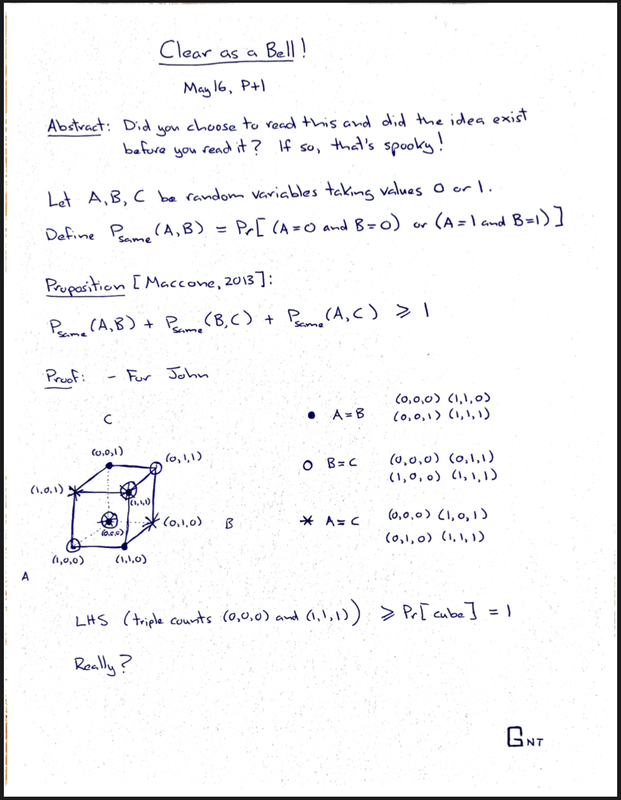 Clear as a Bell!
May 16, P+1
Abstract: Did you choose to read this and did the idea exist
before you read it? If so, that's spooky!
Let A, B, C be random variables taking values 0 or 1.
Define Psame(A,B) = Pr[(A=0 and B=0) or (A=1 and B=1)]
Proposition [Maccone, 2013]:
Psame(A,B) + Psame(B,C) + Psame(A,C) ⩾ 1
Proof: - For John
C
(0,0,1)
(0,1,1)
(1,0,1)
(1,1,1)
(0,1,0)
B
(0,0,0)
(1,0,0)
(1,1,0)
A
● A=B (0,0,0) (1,1,0)
(0,0,1) (1,1,1)
○ B=C (0,0,0) (0,1,1)
(1,0,0) (1,1,1)
* A=C (0,0,0) (1,0,1)
(0,1,0) (1,1,1)
LHS (triple counts (0,0,0) and (1,1,1)) ⩾ Pr[cube] = 1
Really?
GNT